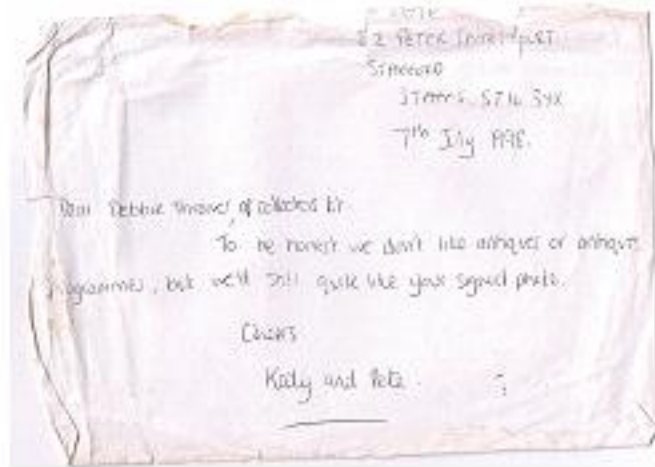 2 PETER
STAFFORD
STAFFS. ST16
7th July 1998.
Dear Debbie Thrower, of collectors lot.
To be honest we don't like antiques or antique
programmes, but we'd still quite like your signed photo.
Cheers
Katy and Pete.